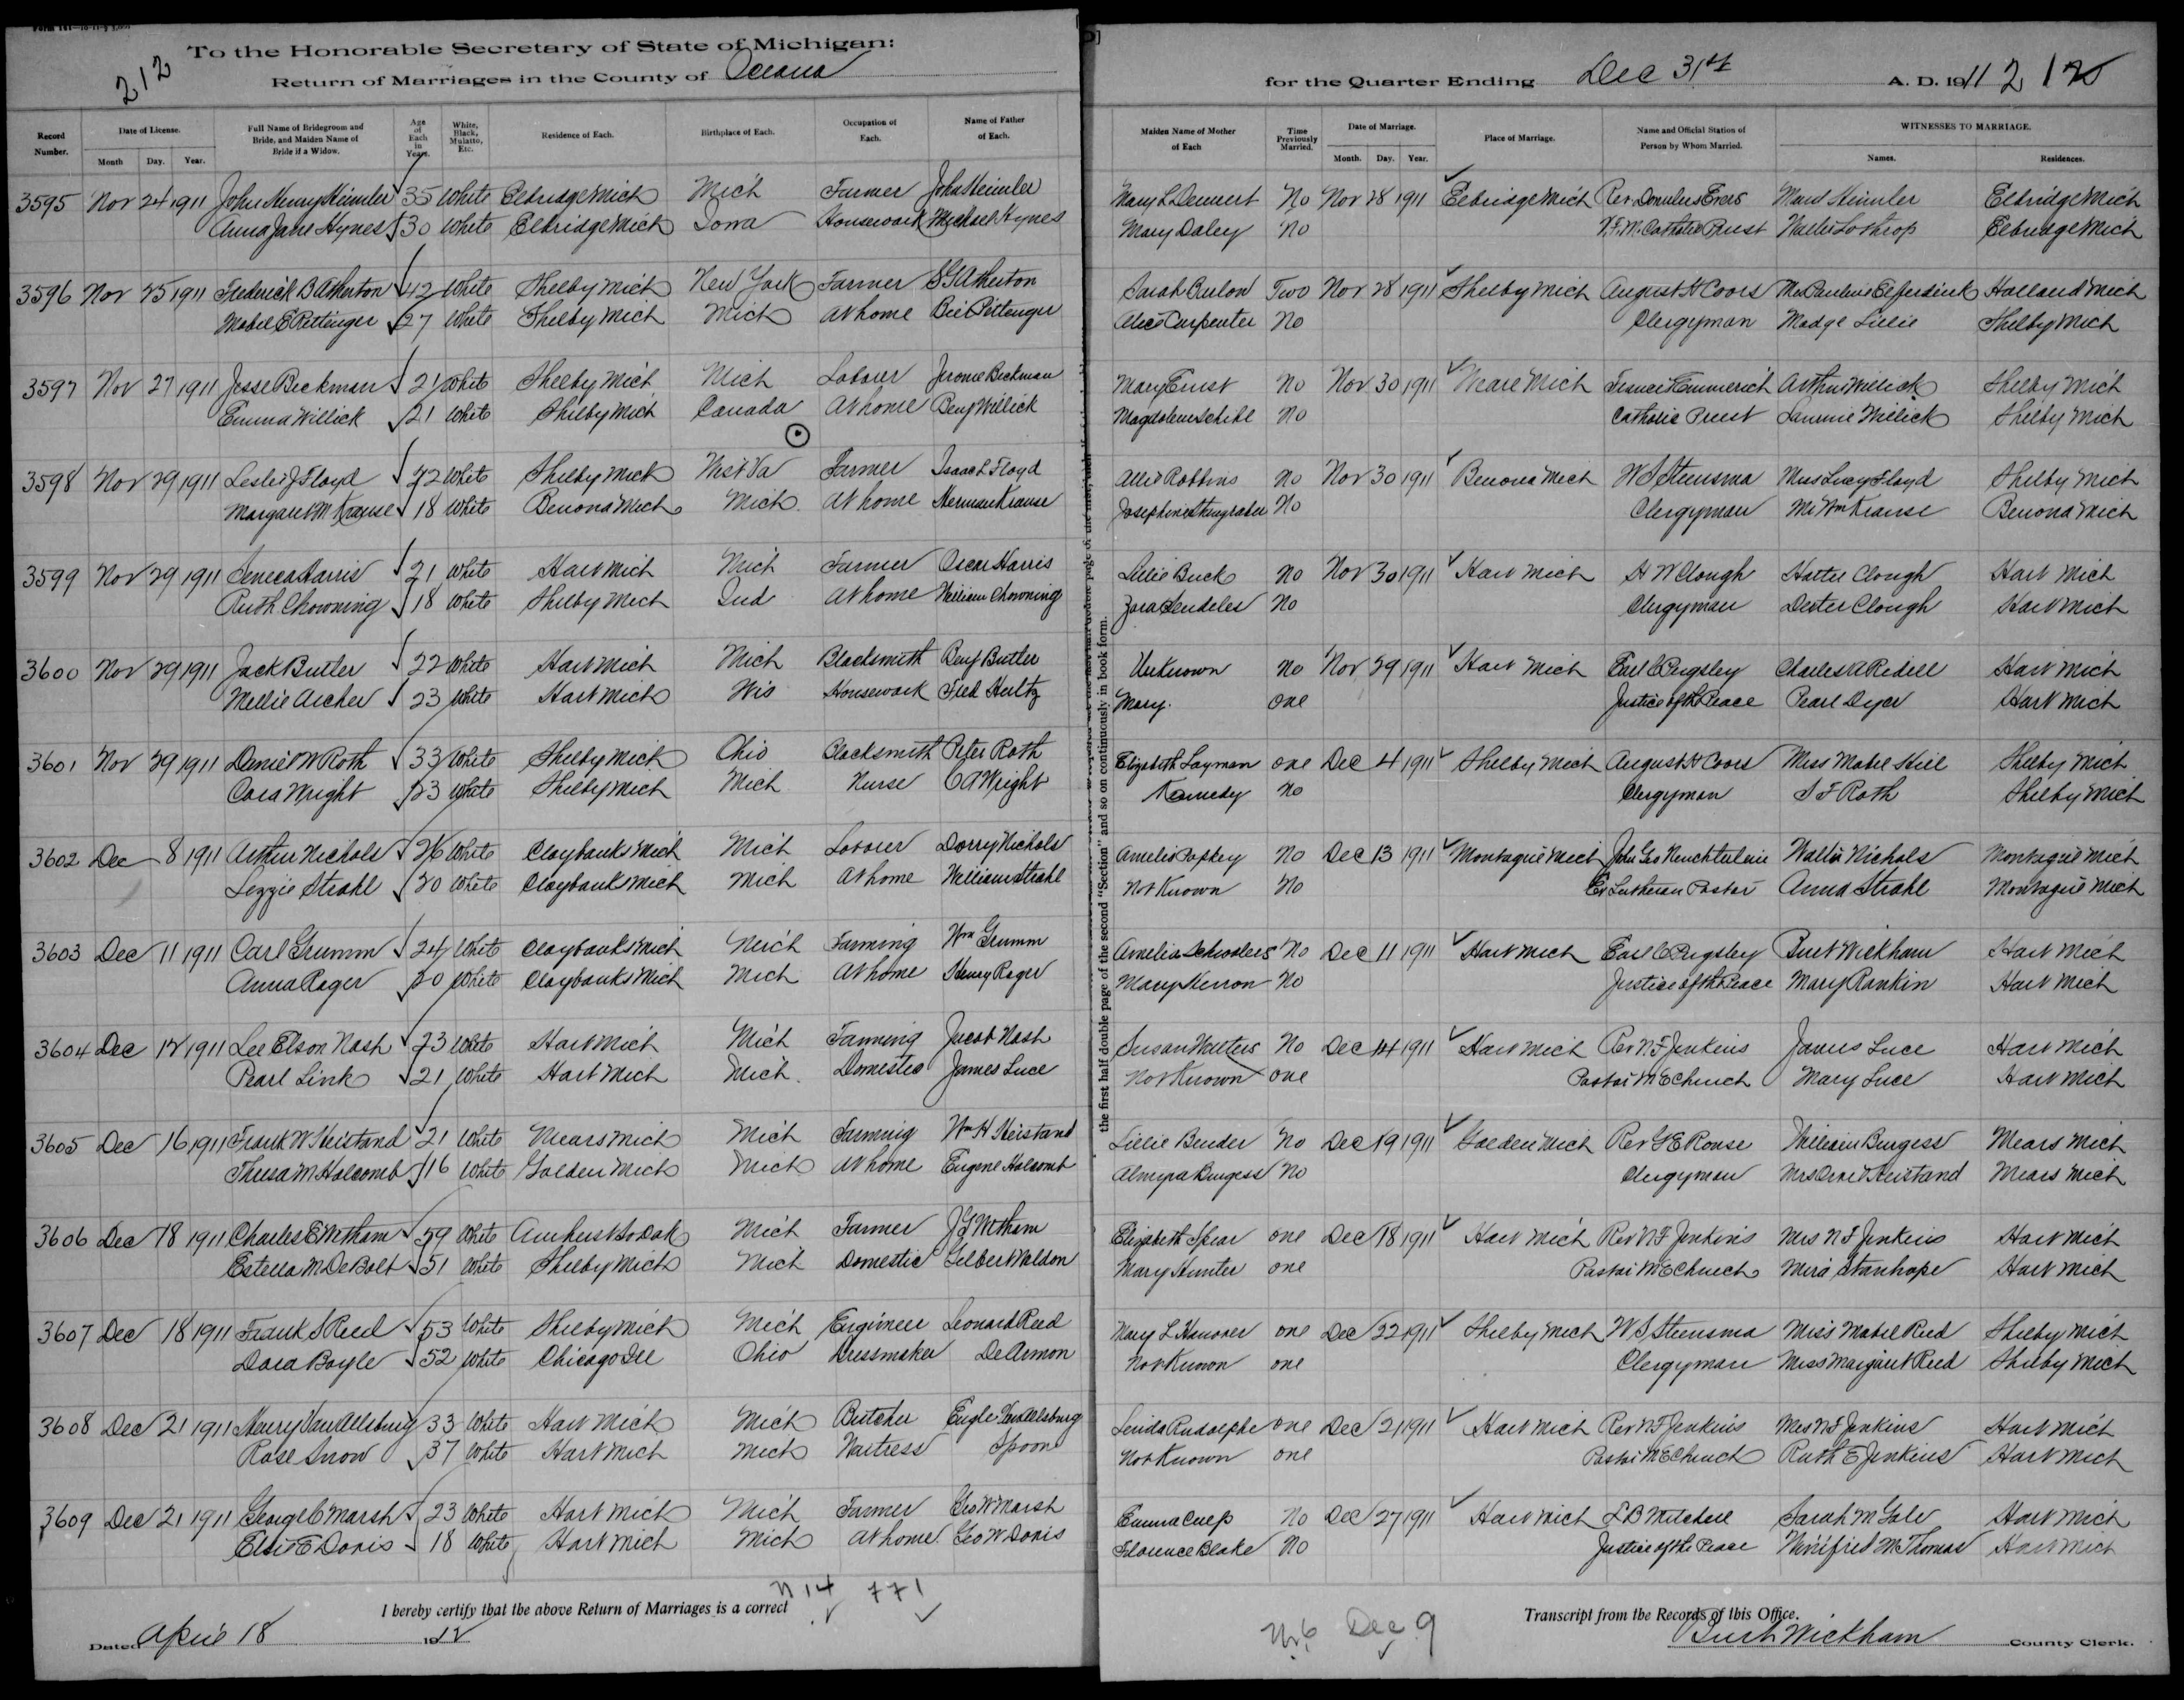 To the Honorable Secretary of State of Michigan:
212
Return of Marriages in the County of Oceana
for the Quarter Ending Dec 31st A. D. 1911 212
Record Number. Date of License. Month Day. Year. Full Name of Bridegroom and Bride, and Maiden Name of Bride if a Widow. Age of Each in Years. White, Black, Mulatto, Etc. Residence of Each. Birthplace of Each. Occupation of Each. Name of Father of Each. Maiden Name of Mother of Each Time Previously Married. Date of Marriage. Month. Day. Year. Place of Marriage. Name and Official Station of Person by Whom Married. WITNESSES TO MARRIAGE. Names. Residences.
3595 Nov 24 1911 John Henry Heimler 35 White Elbridge Mich Mich Farmer John Heimler Mary L Dennert No Nov 28 1911 Elbridge Mich Rev Evers Maud Heimler Elbridge Mich
Anna Jane Hynes 30 White Elbridge Mich Iowa Housework Michael Hynes Mary Daley No Catholic Priest Lothrop Elbridge Mich
3596 Nov 25 1911 Frederick B Atherton 42 White Shelby Mich New York Farmer S G Atherton Sarah Barlow Two Nov 28 1911 Shelby Mich August H Coors Mrs Pauline Elferdink Holland Mich
Mabel E Pettinger 27 White Shelby Mich Mich At home Pettinger Alice Carpenter No Clergyman Madge Lillie Shelby Mich
3597 Nov 27 1911 Jesse Beckman 21 White Shelby Mich Mich Laborer Jerome Beckman Mary Ernst No Nov 30 1911 Weare Mich Emmerich Arthur Willick Shelby Mich
Emma Willick 21 White Shelby Mich Canada At home Benj Willick Magdalene Schihl No Catholic Priest Willick Shelby Mich
3598 Nov 29 1911 Leslie J Floyd 22 White Shelby Mich West Va Farmer Isaac L Floyd Allie Robbins No Nov 30 1911 Benona Mich W S Steensma Miss Lucy Floyd Shelby Mich
Margaret M Krause 18 White Benona Mich Mich. At home Herman Krause Josephine No Clergyman Mr Wm Krause Benona Mich
3599 Nov 29 1911 Seneca Harris 21 White Hart Mich Mich Farmer Oscar Harris Lillie Buck No Nov 30 1911 Hart Mich H W Clough Hattie Clough Hart Mich
Ruth Chowning 18 White Shelby Mich Ind At home William Chowning Zora No Clergyman Dexter Clough Hart Mich
3600 Nov 29 1911 Jack Butler 22 White Hart Mich Mich Blacksmith Benj Butler Unknown No Nov 29 1911 Hart Mich Earl C Pugsley Charles A Redell Hart Mich
Mellie Archer 23 White Hart Mich Wis Housework Fred Hultz Mary. one Justice of the Peace Pearl Dyer Hart Mich
3601 Nov 29 1911 Daniel W Roth 33 White Shelby Mich Ohio Blacksmith Peter Roth Elizabeth Layman one Dec 4 1911 Shelby Mich August H Coors Miss Mabel Hill Shelby Mich
Cora Wright 23 White Shelby Mich Mich Nurse C A Wright Kennedy No Clergyman S F Roth Shelby Mich
3602 Dec 8 1911 Arthur Nichols 26 White Claybanks Mich Mich Laborer Dorry Nichols Amelia Papkey No Dec 13 1911 Montague Mich John Geo Nuechterlein Walter Nichols Montague Mich
Lizzie Strahl 20 White Claybanks Mich Mich At home William Strahl Not Known No Ev Lutheran Pastor Anna Strahl Montague Mich
3603 Dec 11 1911 Carl Grumm 24 White Claybanks Mich Mich Farming Wm Grumm Amelia No Dec 11 1911 Hart Mich Earl C Pugsley Burt Wickham Hart Mich
Anna Rager 20 White Claybanks Mich Mich At home Henry Rager Mary Herron No Justice of the Peace Mary Rankin Hart Mich
3604 Dec 12 1911 Lee Elson Nash 23 White Hart Mich Mich Farming Jacob Nash Susan Walters No Dec 14 1911 Hart Mich Rev N F Jenkins James Luce Hart Mich
Pearl Link 21 White Hart Mich Mich. Domestic James Luce Not Known one Pastor M E Church Mary Luce Hart Mich
3605 Dec 16 1911 Frank W Heistand 21 White Mears Mich Mich Farming Wm H Heistand Lillie Bender No Dec 19 1911 Golden Mich Rev G E Rouse William Burgess Mears Mich
Thresa M Holcomb 16 White Golden Mich Mich At home Eugene Holcomb Almyra Burgess No Clergyman Mrs Heistand Mears Mich
3606 Dec 18 1911 Charles E Witham 59 White Amherst So Dak Mich Farmer J G Witham Elizabeth Spear one Dec 18 1911 Hart Mich Rev N F Jenkins Mrs N F Jenkins Hart Mich
Estella M DeBolt 51 White Shelby Mich Mich Domestic Gilbert Waldon Mary Hunter one Pastor M E Church Mira Stanhope Hart Mich
3607 Dec 18 1911 Frank S Reed 53 White Shelby Mich Mich Engineer Leonard Reed Mary L Hanover one Dec 22 1911 Shelby Mich W S Steensma Miss Mabel Reed Shelby Mich
Dora Boyle 52 White Chicago Ill Ohio Dressmaker DeArmon Not Known one Clergyman Miss Margaret Reed Shelby Mich
3608 Dec 21 1911 Harry VanAllsburg 33 White Hart Mich Mich Butcher Engle VanAllsburg Linda Rudolphe one Dec 21 1911 Hart Mich Rev N F Jenkins Mrs N F Jenkins Hart Mich
Rose Snow 37 White Hart Mich Mich Waitress Spoon Not Known one Pastor M E Church Ruth E Jenkins Hart Mich
3609 Dec 21 1911 George C Marsh 23 White Hart Mich Mich Farmer Geo W Marsh Emma Culp No Dec 27 1911 Hart Mich L B Mitchell Sarah M Gale Hart Mich
Elsie E Davis 18 White Hart Mich Mich At home. Geo W Davis Florence Blake No Justice of the Peace Winifred M Thomas Hart Mich
the first half double page of the second "Section" and so on continuously in book form.
N 14 771
I hereby certify that the above Return of Marriages is a correct Transcript from the Records of this Office.
Dec 9
Dated April 18 1912
Burt Wickham County Clerk.